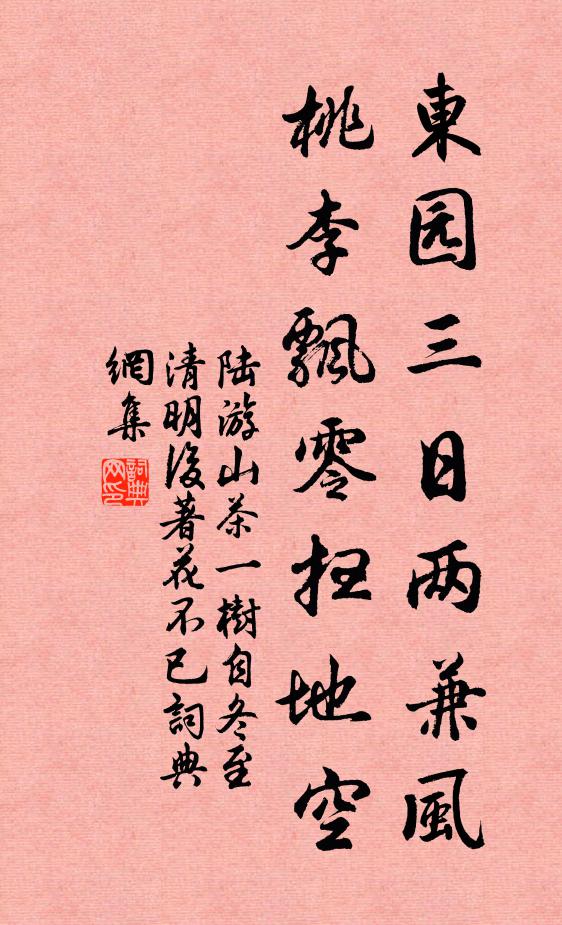 東园三日两兼風
桃李飄零扫地空
陆游山茶一樹自冬至
清明後著花不已詞典
網集
詞典
网印